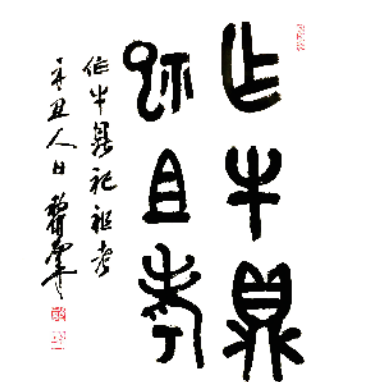 乍牛鼎
祀且考
作牛鼎祀祖考
辛丑人日